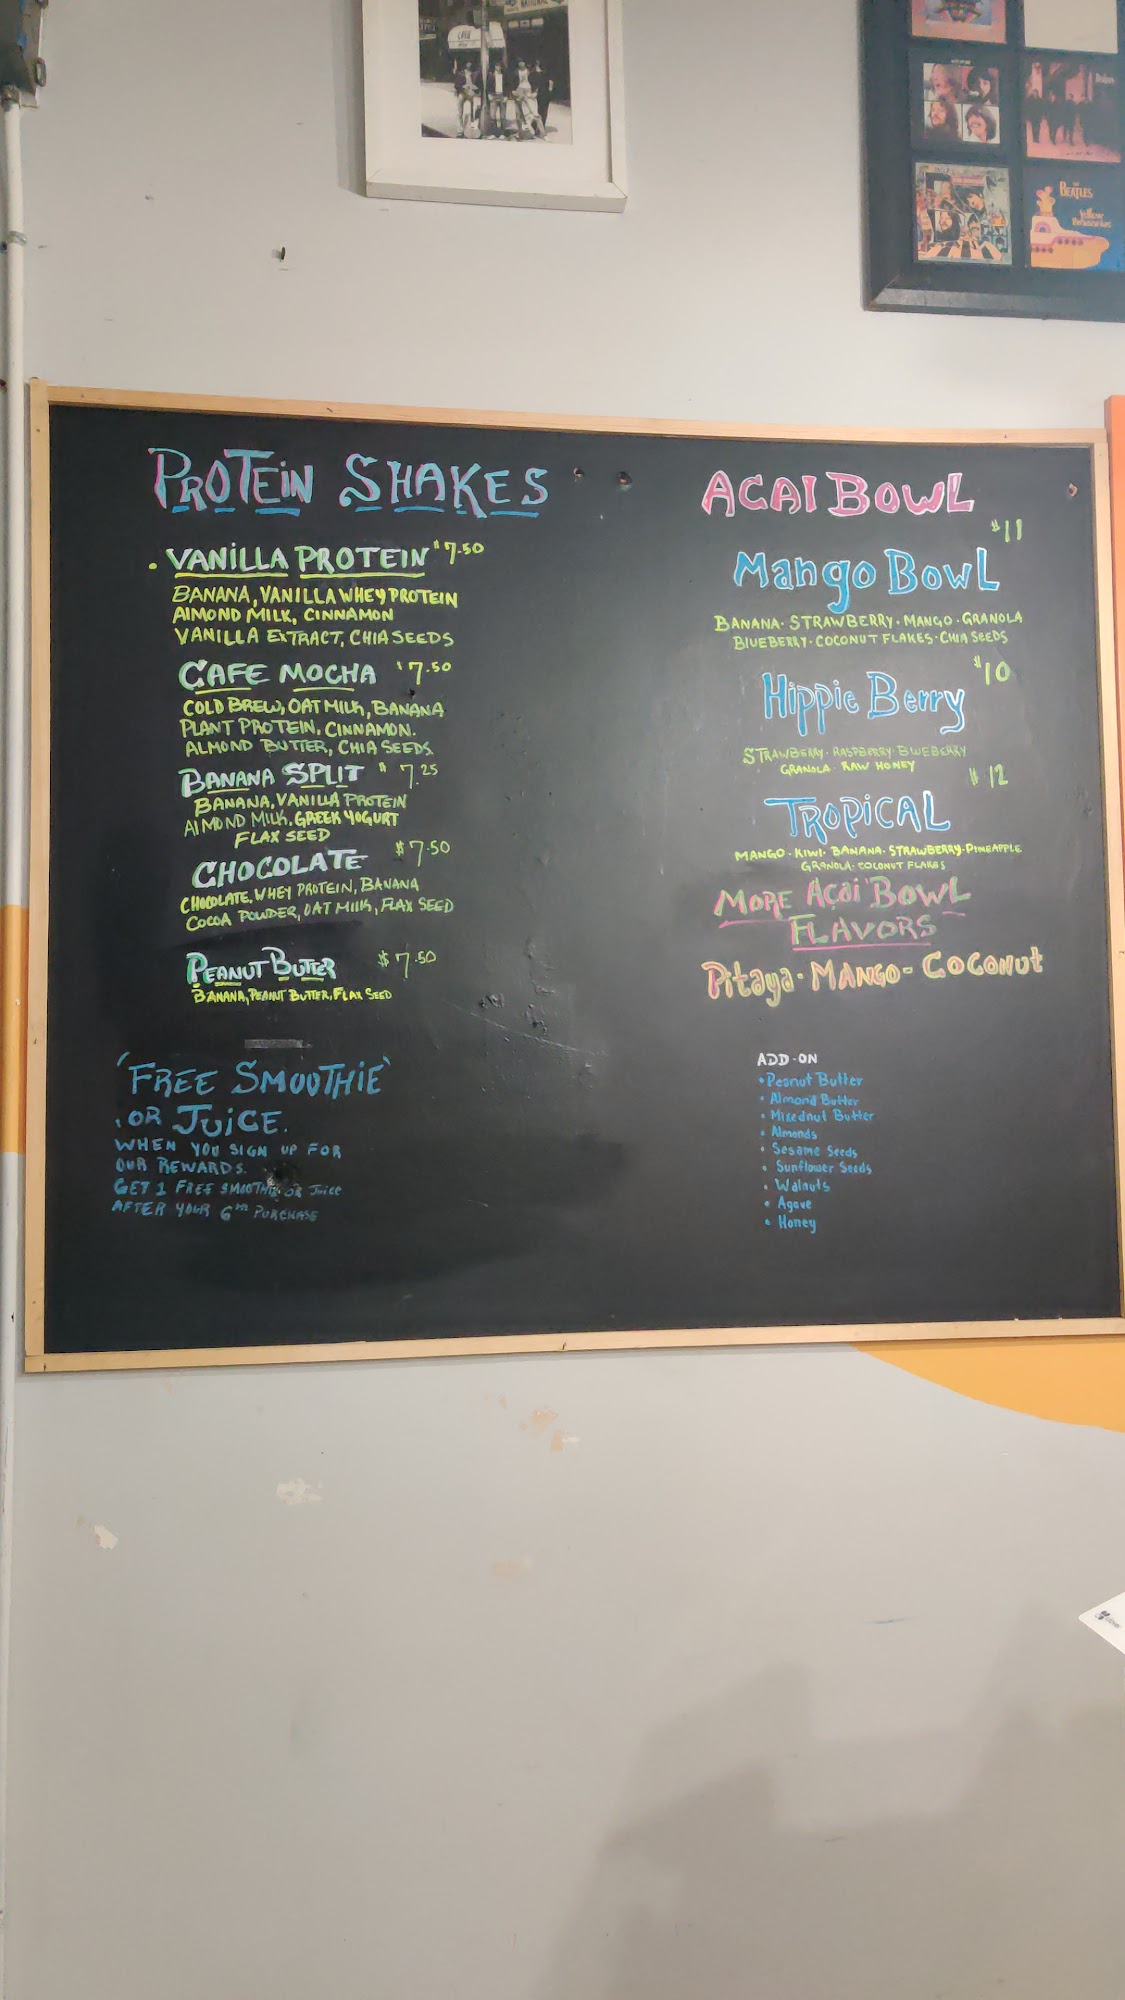 THE
BEATLES
Yellow
Submarine
PROTEiN SHAKES
. VANiLLA PROTEIN $7.50
BANANA, VANILLA WHEY PROTEIN
AlMOND MILK, CINNAMON
VANILLA EXTRACT, CHIA SEEDS
CAFE MOCHA $7.50
COLD BREW, OAT MILK, BANANA
PLANT PROTEIN, CINNAMON.
ALMOND BUTTER, CHIA SEEDS
BANANA SPLIT $7.25
BANANA, VANILLA PROTEIN
AlMOND MILK, GREEK YOGURT
FLAX SEED
CHOCOLATE $7.50
CHOCOLATE, WHEY PROTEIN, BANANA
COCOA POWDER, OAT MILK, FLAX SEED
PEANUT BUTTER $7.50
BANANA, PEANUT BUTTER, FLAX SEED
'FREE SMOOTHIE'
, OR JUiCE.
WHEN YOU SIGN UP FOR
OUR REWARDS.
GET 1 FREE SMOOTHIE OR Juice
AFTER YOUR 6TH PURCHASE
ACAI BOWL
$11
Mango BowL
BANANA · STRAWBERRY · MANGO · GRANOLA
BlUEBERRY · COCONUT FLAKES · CHIA SEEDS
$10
Hippie Berry
STRAWBERRY · RASPBERRY · BLUEBERRY
GRANOLA · RAW HONEY
$12
TROPiCAL
MANGO · KIWI · BANANA · STRAWBERRY · PINEAPPLE
GRANOLA · COCONUT FLAKES
MORE AÇai BOWL
FLAVORS
Pitaya · MANGO · COCONUT
ADD-ON
• Peanut Butter
• Almond Butter
• Mixednut Butter
• Almonds
• Sesame Seeds
• Sunflower Seeds
• Walnuts
• Agave
• Honey